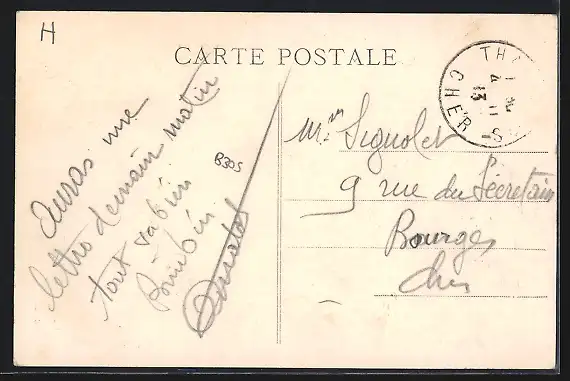 H
CARTE POSTALE
auras une
lettre demain matin
tout va bien
B305
Mr Signolet
9 rue du Secretain
Bourges
Cher
CHER
13